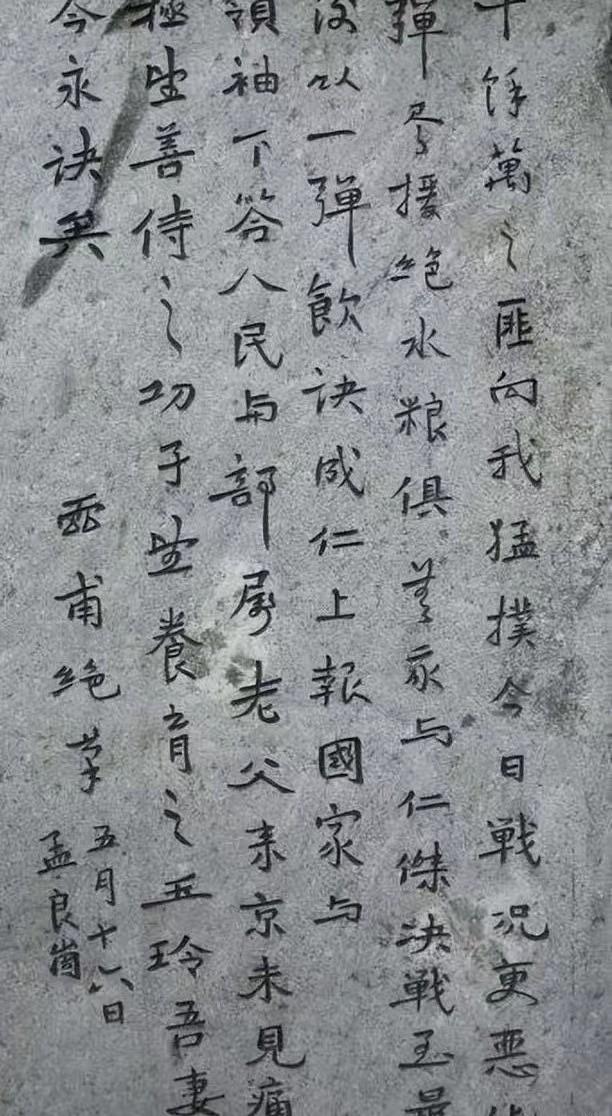 十餘萬之匪向我猛撲今日戰况更惡
彈盡援絕水粮俱無我与仁傑決戰至最
後以一彈飲訣成仁上報國家与
領袖下答人民与部属老父来京未見痛
極望善待之幼子望養育之玉玲吾妻
今永訣矣
霊甫絕筆 五月十六日
孟良崮